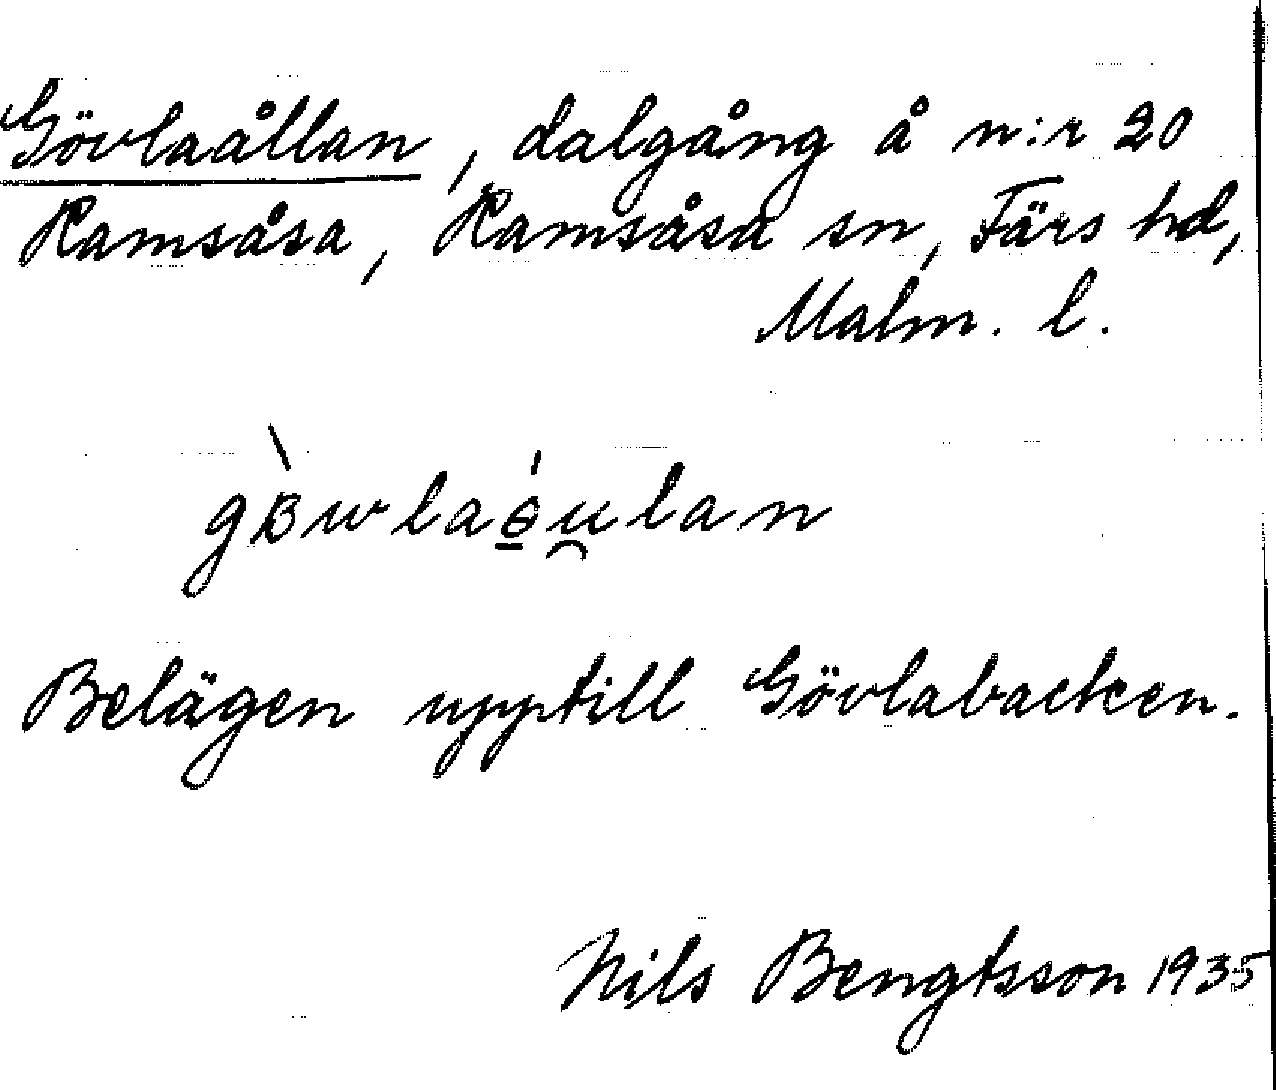 Gövlaållan, dalgång å n:r 20
Ramsåsa, Ramsåsa sn, Färs hd,
Malm. l.
gʙ̀wlaɵ̲́u̯lan
Belägen upptill Gövlabacken.
Nils Bengtsson 1935